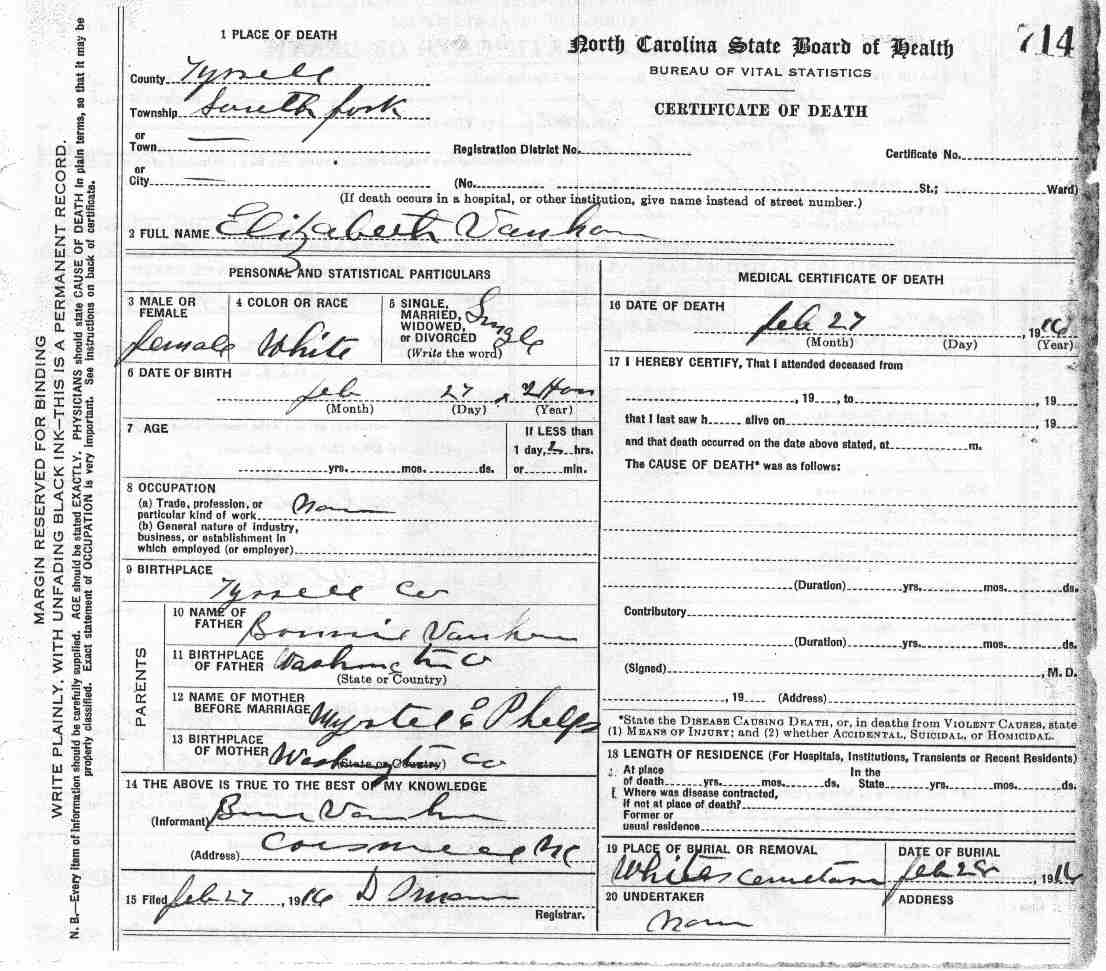 714
1 PLACE OF DEATH
North Carolina State Board of Health
BUREAU OF VITAL STATISTICS
CERTIFICATE OF DEATH
County Tyrrell
Township South fork
or
Town
Registration District No.
Certificate No.
or
City
(No. St.; Ward)
(If death occurs in a hospital, or other institution, give name instead of street number.)
2 FULL NAME Elizabeth
PERSONAL AND STATISTICAL PARTICULARS
3 MALE OR FEMALE
female
4 COLOR OR RACE
White
5 SINGLE, MARRIED, WIDOWED, or DIVORCED
(Write the word)
Single
6 DATE OF BIRTH
feb 27
(Month) (Day) (Year)
7 AGE
yrs. mos. ds.
If LESS than
1 day, 2 hrs.
or min.
8 OCCUPATION
(a) Trade, profession, or
particular kind of work
(b) General nature of industry,
business, or establishment in
which employed (or employer)
9 BIRTHPLACE
Tyrrell Co
PARENTS
10 NAME OF FATHER
11 BIRTHPLACE OF FATHER
Washington Co
(State or Country)
12 NAME OF MOTHER BEFORE MARRIAGE
Myrtel E Phelps
13 BIRTHPLACE OF MOTHER
Washington Co
(State or Country)
14 THE ABOVE IS TRUE TO THE BEST OF MY KNOWLEDGE
(Informant)
(Address) NC
15 Filed feb 27, 1916
Registrar.
MEDICAL CERTIFICATE OF DEATH
16 DATE OF DEATH
feb 27, 1916
(Month) (Day) (Year)
17 I HEREBY CERTIFY, That I attended deceased from
, 19 , to , 19
that I last saw h alive on , 19
and that death occurred on the date above stated, at m.
The CAUSE OF DEATH* was as follows:
(Duration) yrs. mos. ds.
Contributory
(Duration) yrs. mos. ds.
(Signed) , M. D.
, 19 (Address)
*State the DISEASE CAUSING DEATH, or, in deaths from VIOLENT CAUSES, state
(1) MEANS OF INJURY; and (2) whether ACCIDENTAL, SUICIDAL, OR HOMICIDAL.
18 LENGTH OF RESIDENCE (For Hospitals, Institutions, Transients or Recent Residents)
At place
of death yrs. mos. ds.
In the
State yrs. mos. ds.
Where was disease contracted,
if not at place of death?
Former or
usual residence
19 PLACE OF BURIAL OR REMOVAL
Whites
DATE OF BURIAL
feb 28, 1916
20 UNDERTAKER
ADDRESS
MARGIN RESERVED FOR BINDING
WRITE PLAINLY, WITH UNFADING BLACK INK—THIS IS A PERMANENT RECORD.
N. B.—Every item of information should be carefully supplied. AGE should be stated EXACTLY. PHYSICIANS should state CAUSE OF DEATH in plain terms, so that it may be
properly classified. Exact statement of OCCUPATION is very important. See instructions on back of certificate.